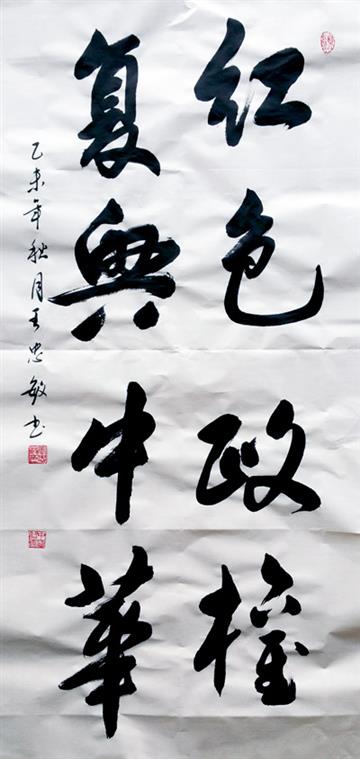 红色政权
复兴中华
乙未年秋月王忠敏书